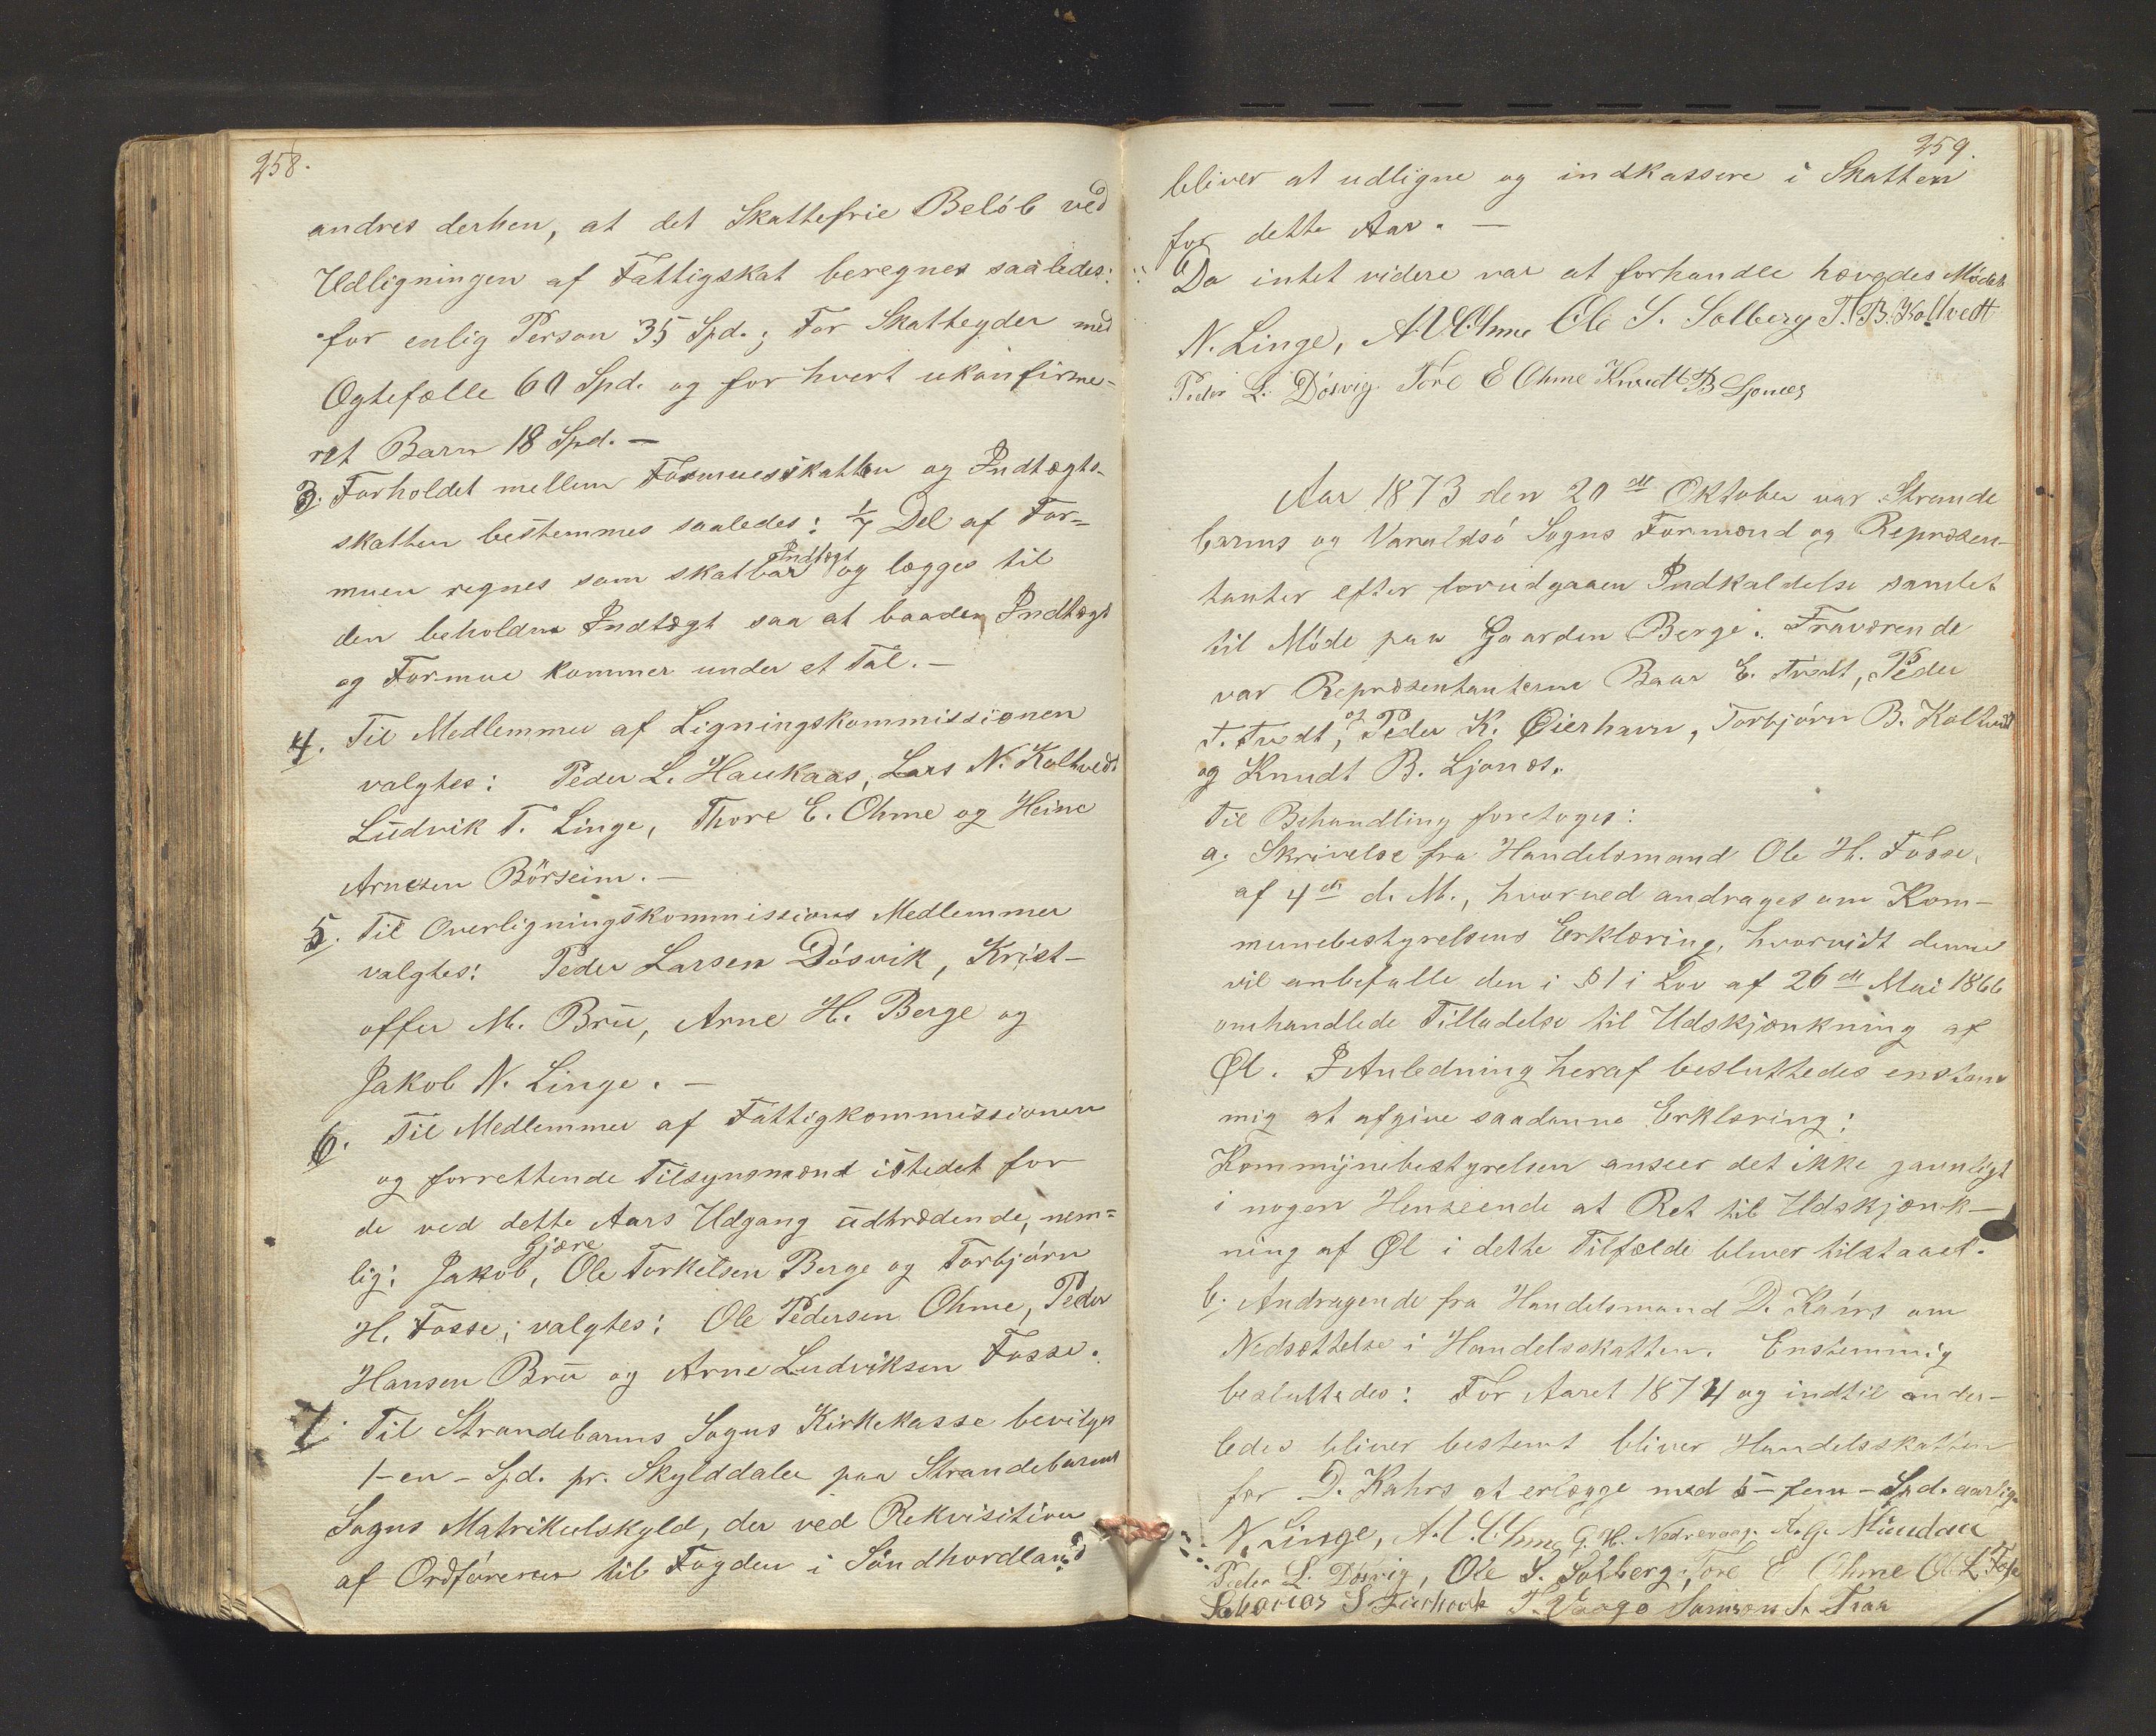 258.
andres derhen, at det Skattefrie Beløb ved
Udligningen af Fattigskat beregnes saaledes:
for enlig Person 35 Spd.; For Skatteyder med
Ægtefælle 60 Spd. og for hvert ukonfirme-
ret Barn 18 Spd. —
3. Forholdet mellem Formuesskatten og Indtægts-
skatten bestemmes saaledes: 1/7 Del af For-
muen regnes som skatbar Indtægt og lægges til
den beholdne Indtægt saa at baaden Indtægt
og Formue kommer under et Tal. —
4. Til Medlemmer af Ligningskommissionen
valgtes: Peder L. Haukaas, Lars N. Kolltvedt
Ludvik T. Linge, Thore E. Ohme og Heine
Arnesen Börseim. —
5. Til Overligningskommissions Medlemmer
valgtes: Peder Larsen Døsvik, Krist-
offer M. Bru, Arne H. Berge og
Jakob N. Linge. —
6. Til Medlemmer af Fattigkommissionen
og forrettende Tilsynsmænd istedet for
de ved dette Aars Udgang udtrædende, nem-
lig: Jakob Gjære, Ole Torkelsen Berge og Torbjørn
H. Fosse; valgtes: Ole Pedersen Ohme, Peder
Hansen Bru og Arne Ludviksen Fosse.
7. Til Strandebarms Sogns Kirkekasse bevilges
1-en- Spd. pr. Skylddaler paa Strandebarms
Sogns Matrikulskyld, der ved Rekvisition
af Ordføreren til Fogden i Søndhordland
259.
bliver at udligne og indkassere i Skatten
for dette Aar. —
Da intet videre var at forhandle hævedes Mødet
N. Linge, A. Ohme Ole S. Solberg T. B. Koltvett
Peder L. Døsvig. Tore E Ohme Knudt B Ljones
Aar 1873 den 20de Oktober var Strande
barms og Varaldsø Sogns Formænd og Repræsen-
tanter efter forudgaaen Indkaldelse samlet
til Møde paa Gaarden Berge. Fraværende
var Repræsentanterne Baar E. Tvedt, Peder
T. Tvedt, og Peder K. Øierhavn, Torbjørn B. Koltvedt
og Knudt B. Ljones.
Til Behandling foretoges:
a. Skrivelse fra Handelsmand Ole H. Fosse,
af 4de d. M., hvorved andrages om Kom-
munebestyrelsens Erklæring, hvorvidt denne
vil anbefalle den i § 1 i Lov af 26de Mai 1866
omhandlede Tilladelse til Udskjænkning af
Øl. I Anledning heraf besluttedes enstem
mig at afgive saadanne Erklæring:
Kommunebestyrelsen anseer det ikke gavnligt
i nogen Henseende at Ret til Udskjænk-
ning af Øl i dette Tilfælde bliver tilstaaet.
b. Andragende fra Handelsmand D. Kahrs om
Nedsættelse i Handelsskatten. Enstemmig
besluttedes: For Aaret 1874 og indtil ander-
ledes bliver bestemt bliver Handelsskatten
for D. Kahrs at erlægge med 5- fem- Spd. aarlig.
N. Linge, A. Ohme G. H. Nedrevaag. A. G. Mundau
Peder L. Døsvig, Ole S. Solberg, Tore E Ohme Ole L Fosse
S T. Vaage Samson S. Traa